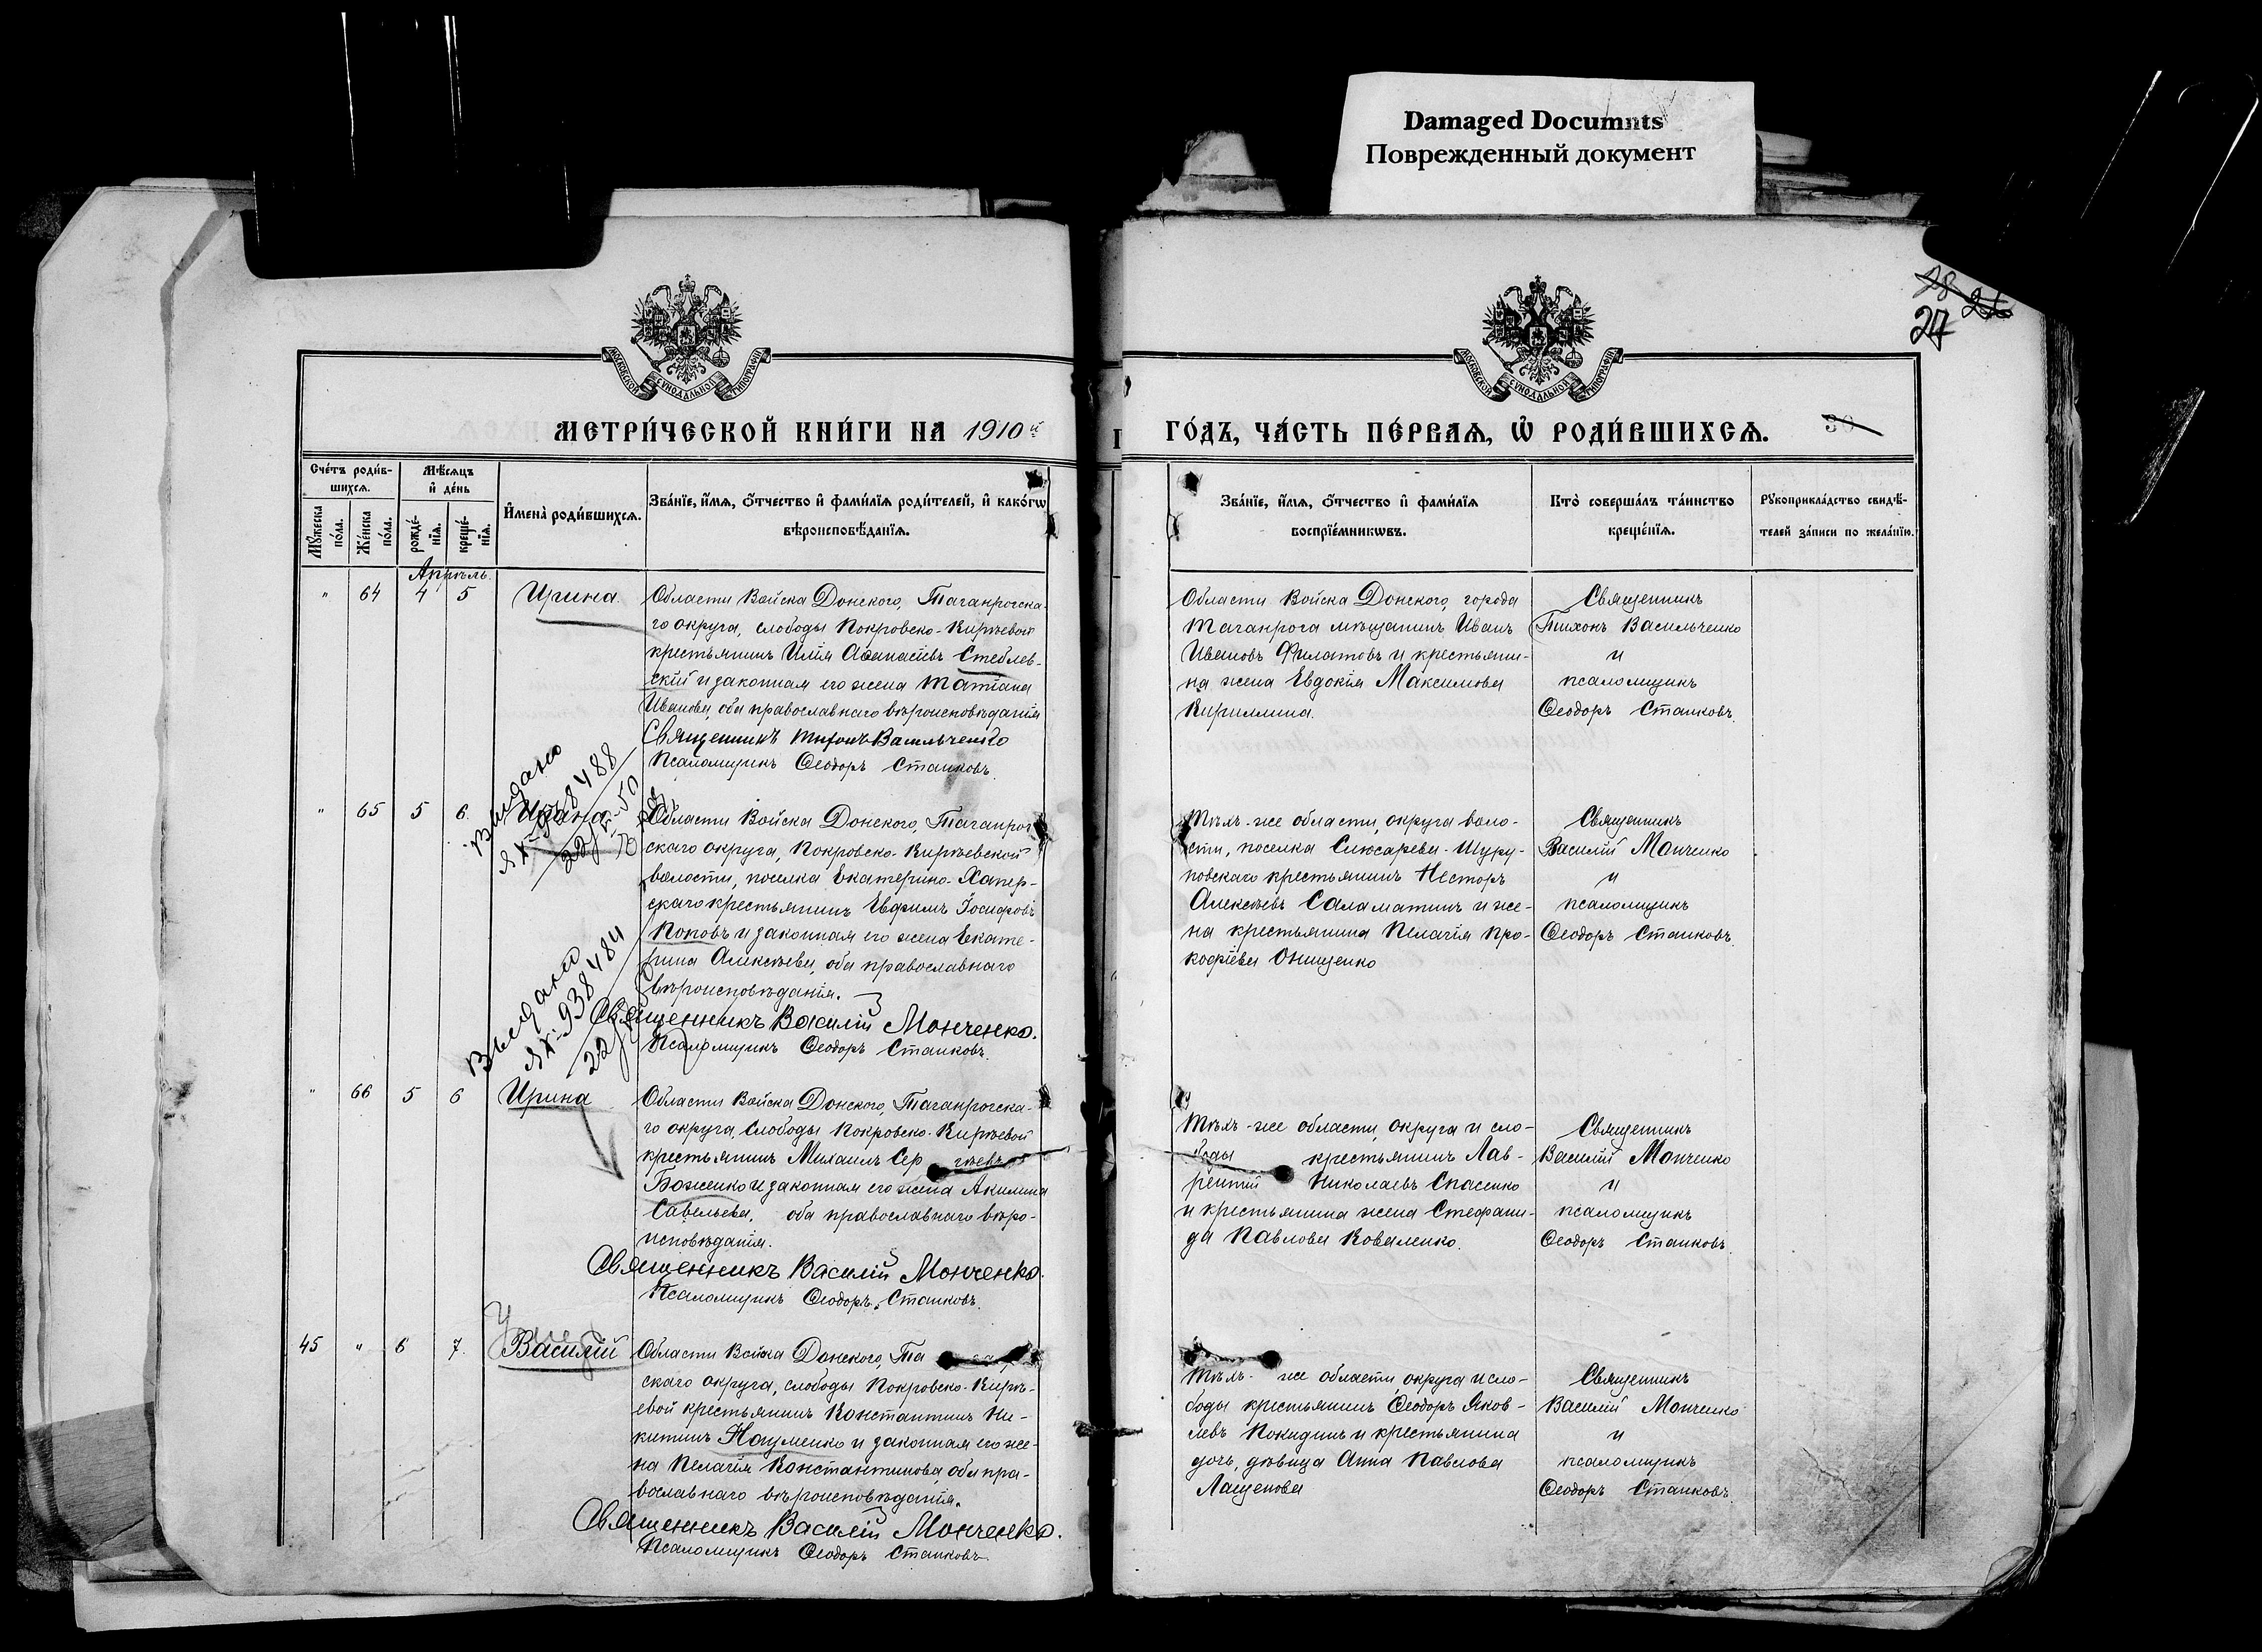 Damaged Documnts
Поврежденный документ
28 26
27
МОСКОВСКОЙ СѴНОДАЛЬНОЙ ТИПОГРАФІИ
МОСКОВСКОЙ СѴНОДАЛЬНОЙ ТИПОГРАФІИ
МЕТРИ́ЧЕСКОЙ КНИ́ГИ НА 1910й
ГО́ДЪ, ЧА́СТЬ ПЕ́РВАѦ, Ѡ҆ РОДИ́ВШИХСѦ. 30
Сче́тъ роди́в-
шихсѧ.
Мѣ́сѧцъ
и҆ де́нь
Мꙋ́жеска по́ла.
Же́нска по́ла.
рожде́-нїѧ.
креще́-нїѧ.
И҆мена̀ роди́вшихсѧ.
Зва́нїе, и҆́мѧ, ѻ҆́тчество и҆ фами́лїѧ роди́телей, и҆ како́гѡ
вѣроисповѣ́данїѧ.
Зва́нїе, и҆́мѧ, ѻ҆́тчество и҆ фами́лїѧ
воспрїе́мникѡвъ.
Кто̀ соверша́лъ та́инство
креще́нїѧ.
Рꙋкоприкла́дство свидѣ́-
телей за́писи по жела́нїю.
Апрѣль.
" 64 4 5 Ирина
Области Войска Донского, Таганрогска-
го округа, слободы Покровско-Кирѣевой
крестьянинъ Илія Аѳанасіевъ Стеблев-
скій и законная его жена Татіана
Иванова, оба православнаго вѣроисповѣданія
Священникъ Тихонъ Васильченко
Псаломщикъ Ѳеодоръ Станковъ.
Области Войска Донского, города
Таганрога мѣщанинъ Иванъ
Ивановъ Филатовъ и крестьяни-
на жена Евдокія Максимова
Кириллина.
Священникъ
Тихонъ Васильченко
и
псаломщикъ
Ѳеодоръ Станковъ.
Выдано
" 65 5 6. Ирина
Области Войска Донского, Таганрог
скаго округа, Покровско-Кирѣевской
волости, поселка Екатерино-Хапер-
скаго крестьянинъ Евфимъ Іосифовъ
Поповъ и законная его жена Екате-
рина Алексѣева, оба православнаго
вѣроисповѣданія.
Священникъ Василій Монченко.
Псаломщикъ Ѳеодоръ Станковъ.
Тѣхъ-же области, округа воло-
сти, поселка Слюсарева-Шуру-
повскаго крестьянинъ Несторъ
Алексѣевъ Саламатинъ и же-
на крестьянина Пелагія Про-
кофіева Онищенко
Священникъ
Василій Монченко
и
псаломщикъ
Ѳеодоръ Станковъ.
Выдано
ЯХ-938484
" 66 5 6 Ирина
Области Войска Донского, Таганрогска-
го округа, слободы Покровско-Кирѣевой
крестьянинъ Михаилъ Сергѣевъ
Боженко и законная его жена Акилина
Савельева, оба православнаго вѣро-
исповѣданія.
Священникъ Василій Монченко.
Псаломщикъ Ѳеодоръ Станковъ.
Тѣхъ-же области, округа и сло-
боды крестьянинъ Лав-
рентій Николаевъ Спасенко
и крестьянина жена Стефани-
да Павлова Коваленко.
Священникъ
Василій Монченко
и
псаломщикъ
Ѳеодоръ Станковъ.
45 " 6 7. Василій
Области Войска Донского, Та
скаго округа, слободы Покровско-Кирѣ-
евой крестьянинъ Константинъ Ни-
китинъ Науменко и законная его же-
на Пелагія Константинова, оба пра-
вославнаго вѣроисповѣданія.
Священникъ Василій Монченко.
Псаломщикъ Ѳеодоръ Станковъ.
Тѣхъ-же области, округа и сло-
боды крестьянинъ Ѳеодоръ Яков-
левъ Покидинъ и крестьянина
дочь, дѣвица Анна Павлова
Лащенова
Священникъ
Василій Монченко
и
псаломщикъ
Ѳеодоръ Станковъ.